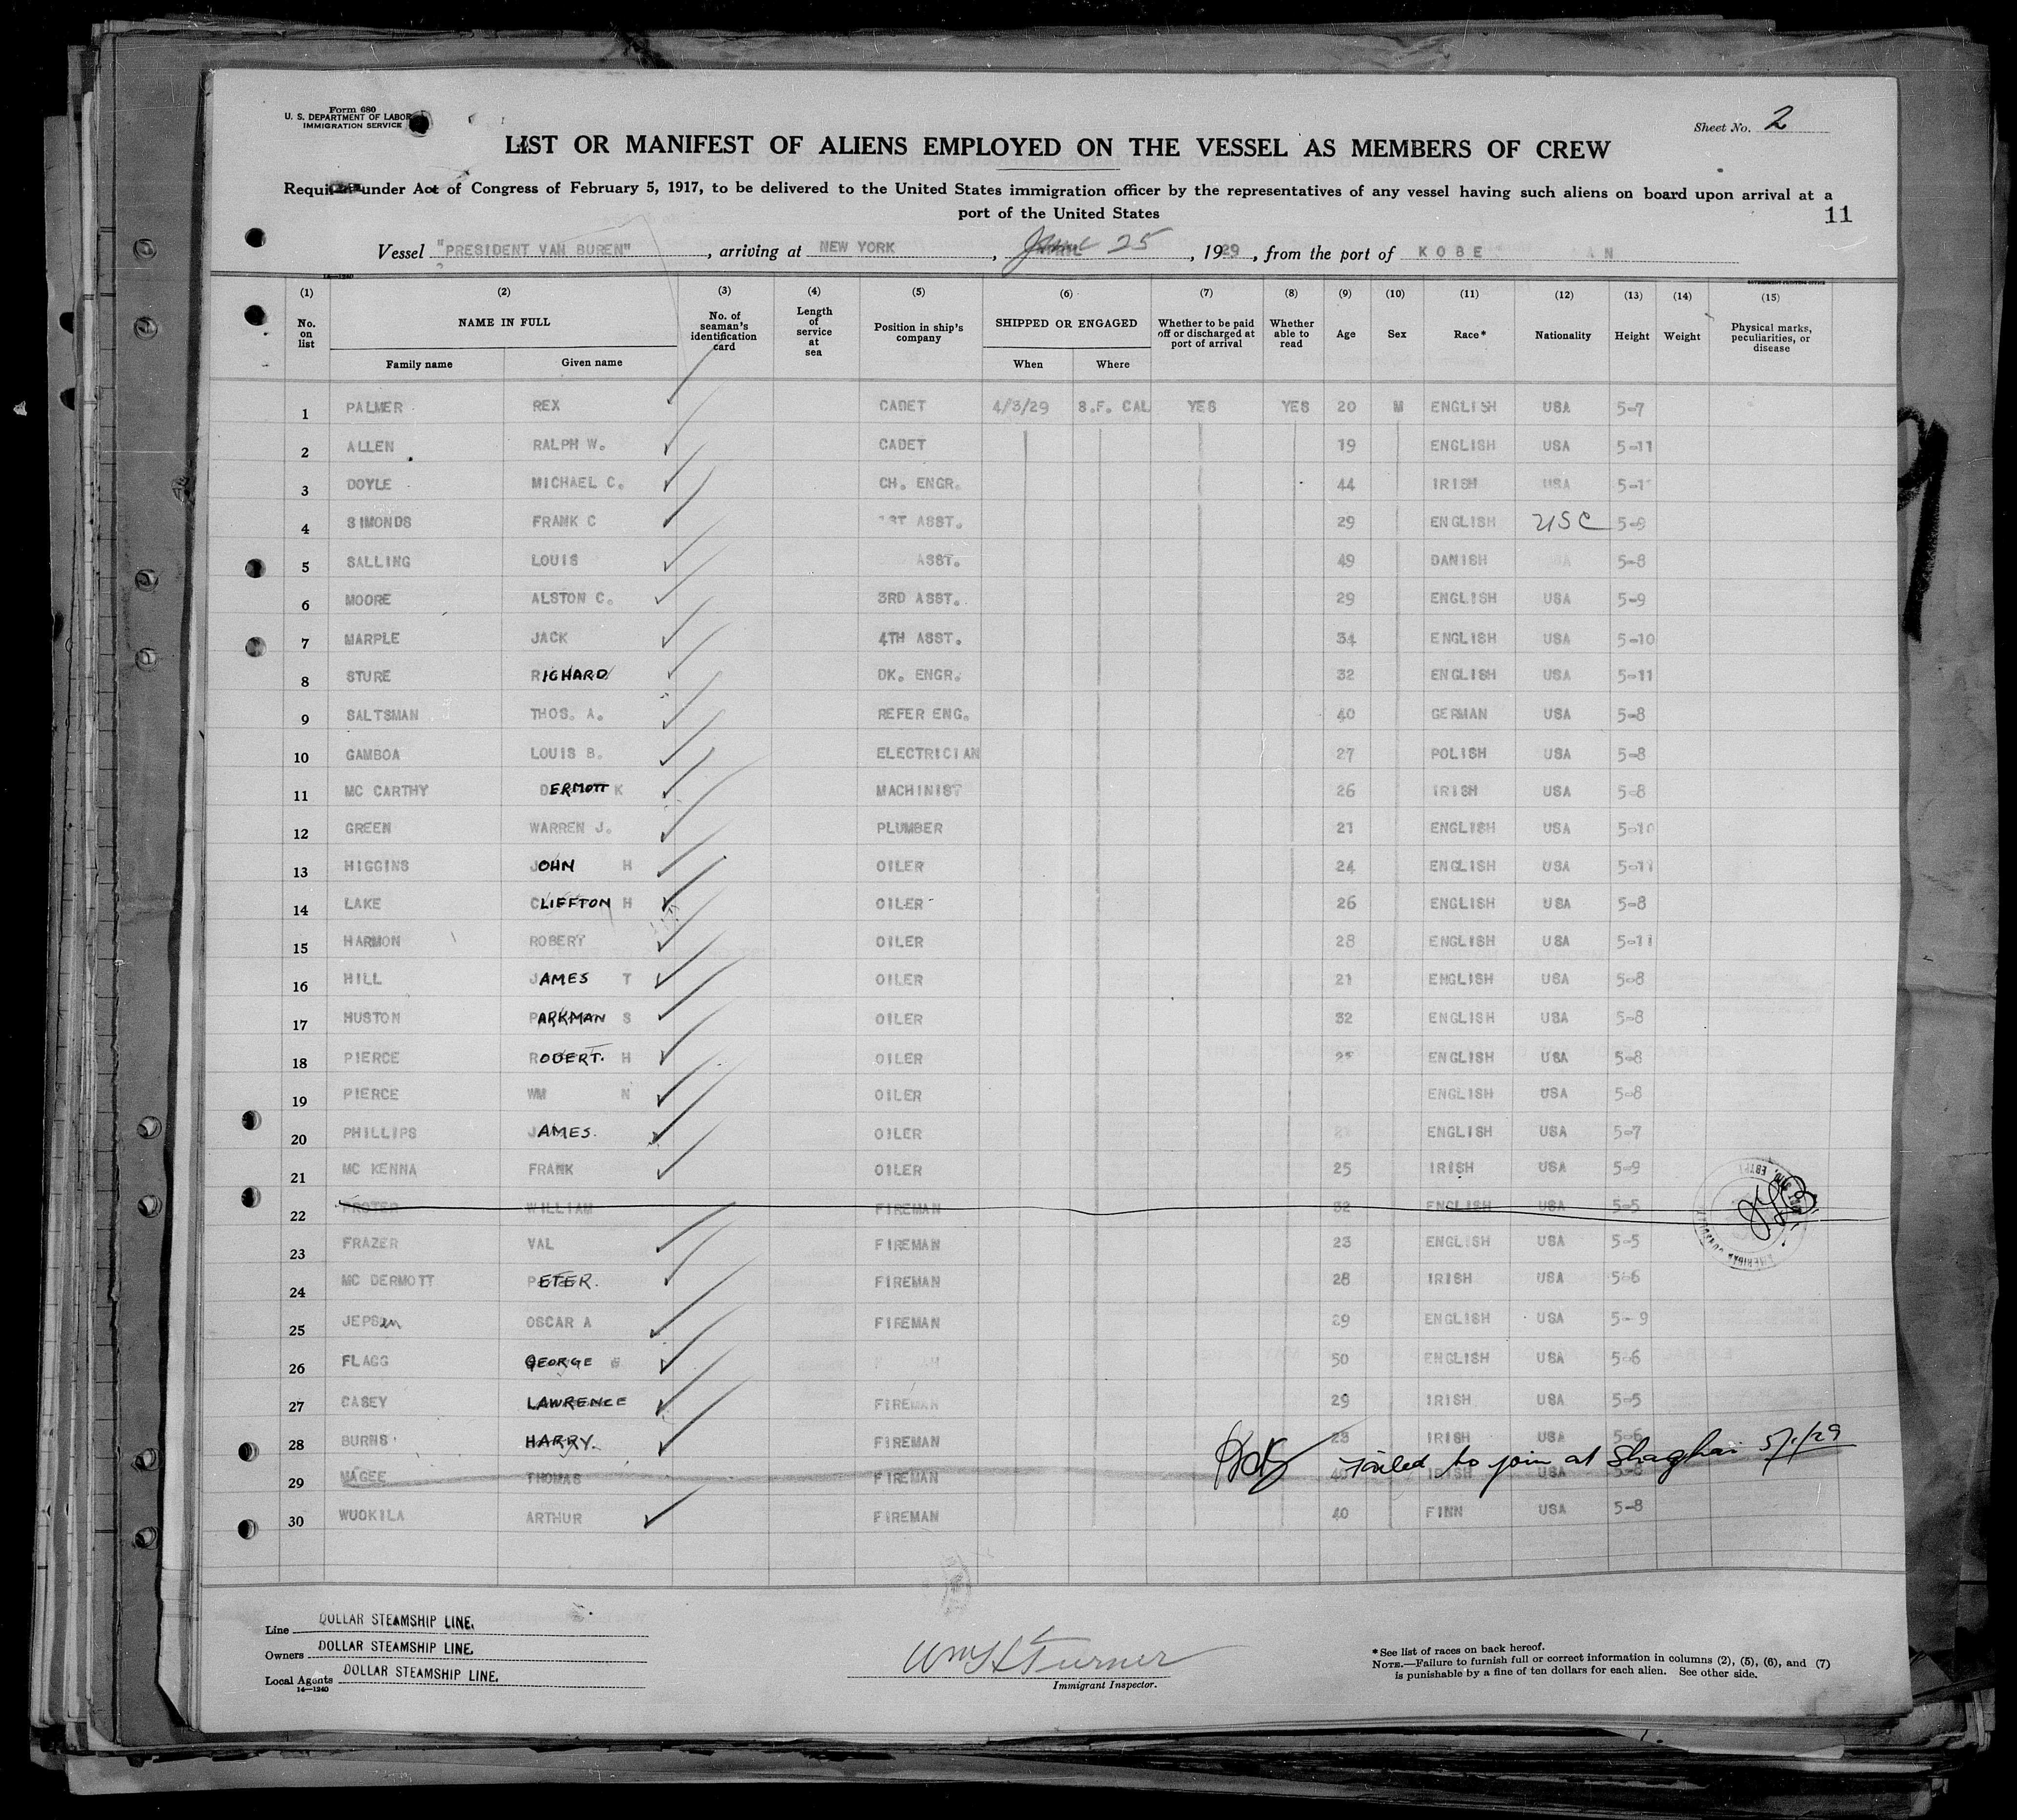 Form 680
U. S. DEPARTMENT OF LABOR
IMMIGRATION SERVICE
Sheet No. 2
LIST OR MANIFEST OF ALIENS EMPLOYED ON THE VESSEL AS MEMBERS OF CREW
under Act of Congress of February 5, 1917, to be delivered to the United States immigration officer by the representatives of any vessel having such aliens on board upon arrival at a
port of the United States
11
Vessel "PRESIDENT VAN BUREN", arriving at NEW YORK, June 25, 1929, from the port of KOBE
14—1240
(1) (2) (3) (4) (5) (6) (7) (8) (9) (10) (11) (12) (13) (14) (15)
No. on list NAME IN FULL No. of seaman's identification card Length of service at sea Position in ship's company SHIPPED OR ENGAGED Whether to be paid off or discharged at port of arrival Whether able to read Age Sex Race* Nationality Height Weight Physical marks, peculiarities, or disease
Family name Given name When Where
1 PALMER REX CADET 4/3/29 S.F. CAL YES YES 20 M ENGLISH USA 5-7
2 ALLEN RALPH W. CADET 19 ENGLISH USA 5-11
3 DOYLE MICHAEL C. CH. ENGR. 44 IRISH USA
4 SIMONDS FRANK C 1ST ASST. 29 ENGLISH USC 5-9
5 SALLING LOUIS ASST. 49 DANISH 5-8
6 MOORE ALSTON C. 3RD ASST. 29 ENGLISH USA 5-9
7 MARPLE JACK 4TH ASST. 34 ENGLISH USA 5-10
8 STURE RICHARD DK. ENGR. 32 ENGLISH USA 5-11
9 SALTSMAN THOS. A. REFER ENG. 40 GERMAN USA 5-8
10 GAMBOA LOUIS B. ELECTRICIAN 27 POLISH USA 5-8
11 MC CARTHY DERMOTT K MACHINIST 26 IRISH USA 5-8
12 GREEN WARREN J. PLUMBER 21 ENGLISH USA 5-10
13 HIGGINS JOHN H OILER 24 ENGLISH USA 5-11
14 LAKE CLIFFTON H OILER 26 ENGLISH USA 5-8
15 HARMON ROBERT OILER 28 ENGLISH USA 5-11
16 HILL JAMES T OILER 21 ENGLISH USA 5-8
17 HUSTON PARKMAN S OILER 32 ENGLISH USA 5-8
18 PIERCE ROBERT. H OILER ENGLISH USA 5-8
19 PIERCE WM N OILER ENGLISH USA 5-8
20 PHILLIPS JAMES. OILER ENGLISH USA 5-7
21 MC KENNA FRANK OILER 25 IRISH USA 5-9
22 WILLIAM FIREMAN 32 ENGLISH USA 5-5
23 FRAZER VAL FIREMAN 23 ENGLISH USA 5-5
24 MC DERMOTT PETER. FIREMAN 28 IRISH USA 5-6
25 JEPSEN OSCAR A FIREMAN 29 ENGLISH USA 5-9
26 FLAGG GEORGE 50 ENGLISH USA 5-6
27 CASEY LAWRENCE FIREMAN 29 IRISH USA 5-5
28 BURNS HARRY. FIREMAN IRISH USA 5-6
Failed to join at Shaghai 5/1/29
29 MAGEE THOMAS FIREMAN IRISH USA
30 WUOKILA ARTHUR FIREMAN 40 FINN USA 5-8
Line DOLLAR STEAMSHIP LINE.
Owners DOLLAR STEAMSHIP LINE.
Local Agents DOLLAR STEAMSHIP LINE.
14—1240
Wm H Turner
Immigrant Inspector.
*See list of races on back hereof.
NOTE.—Failure to furnish full or correct information in columns (2), (5), (6), and (7)
is punishable by a fine of ten dollars for each alien. See other side.